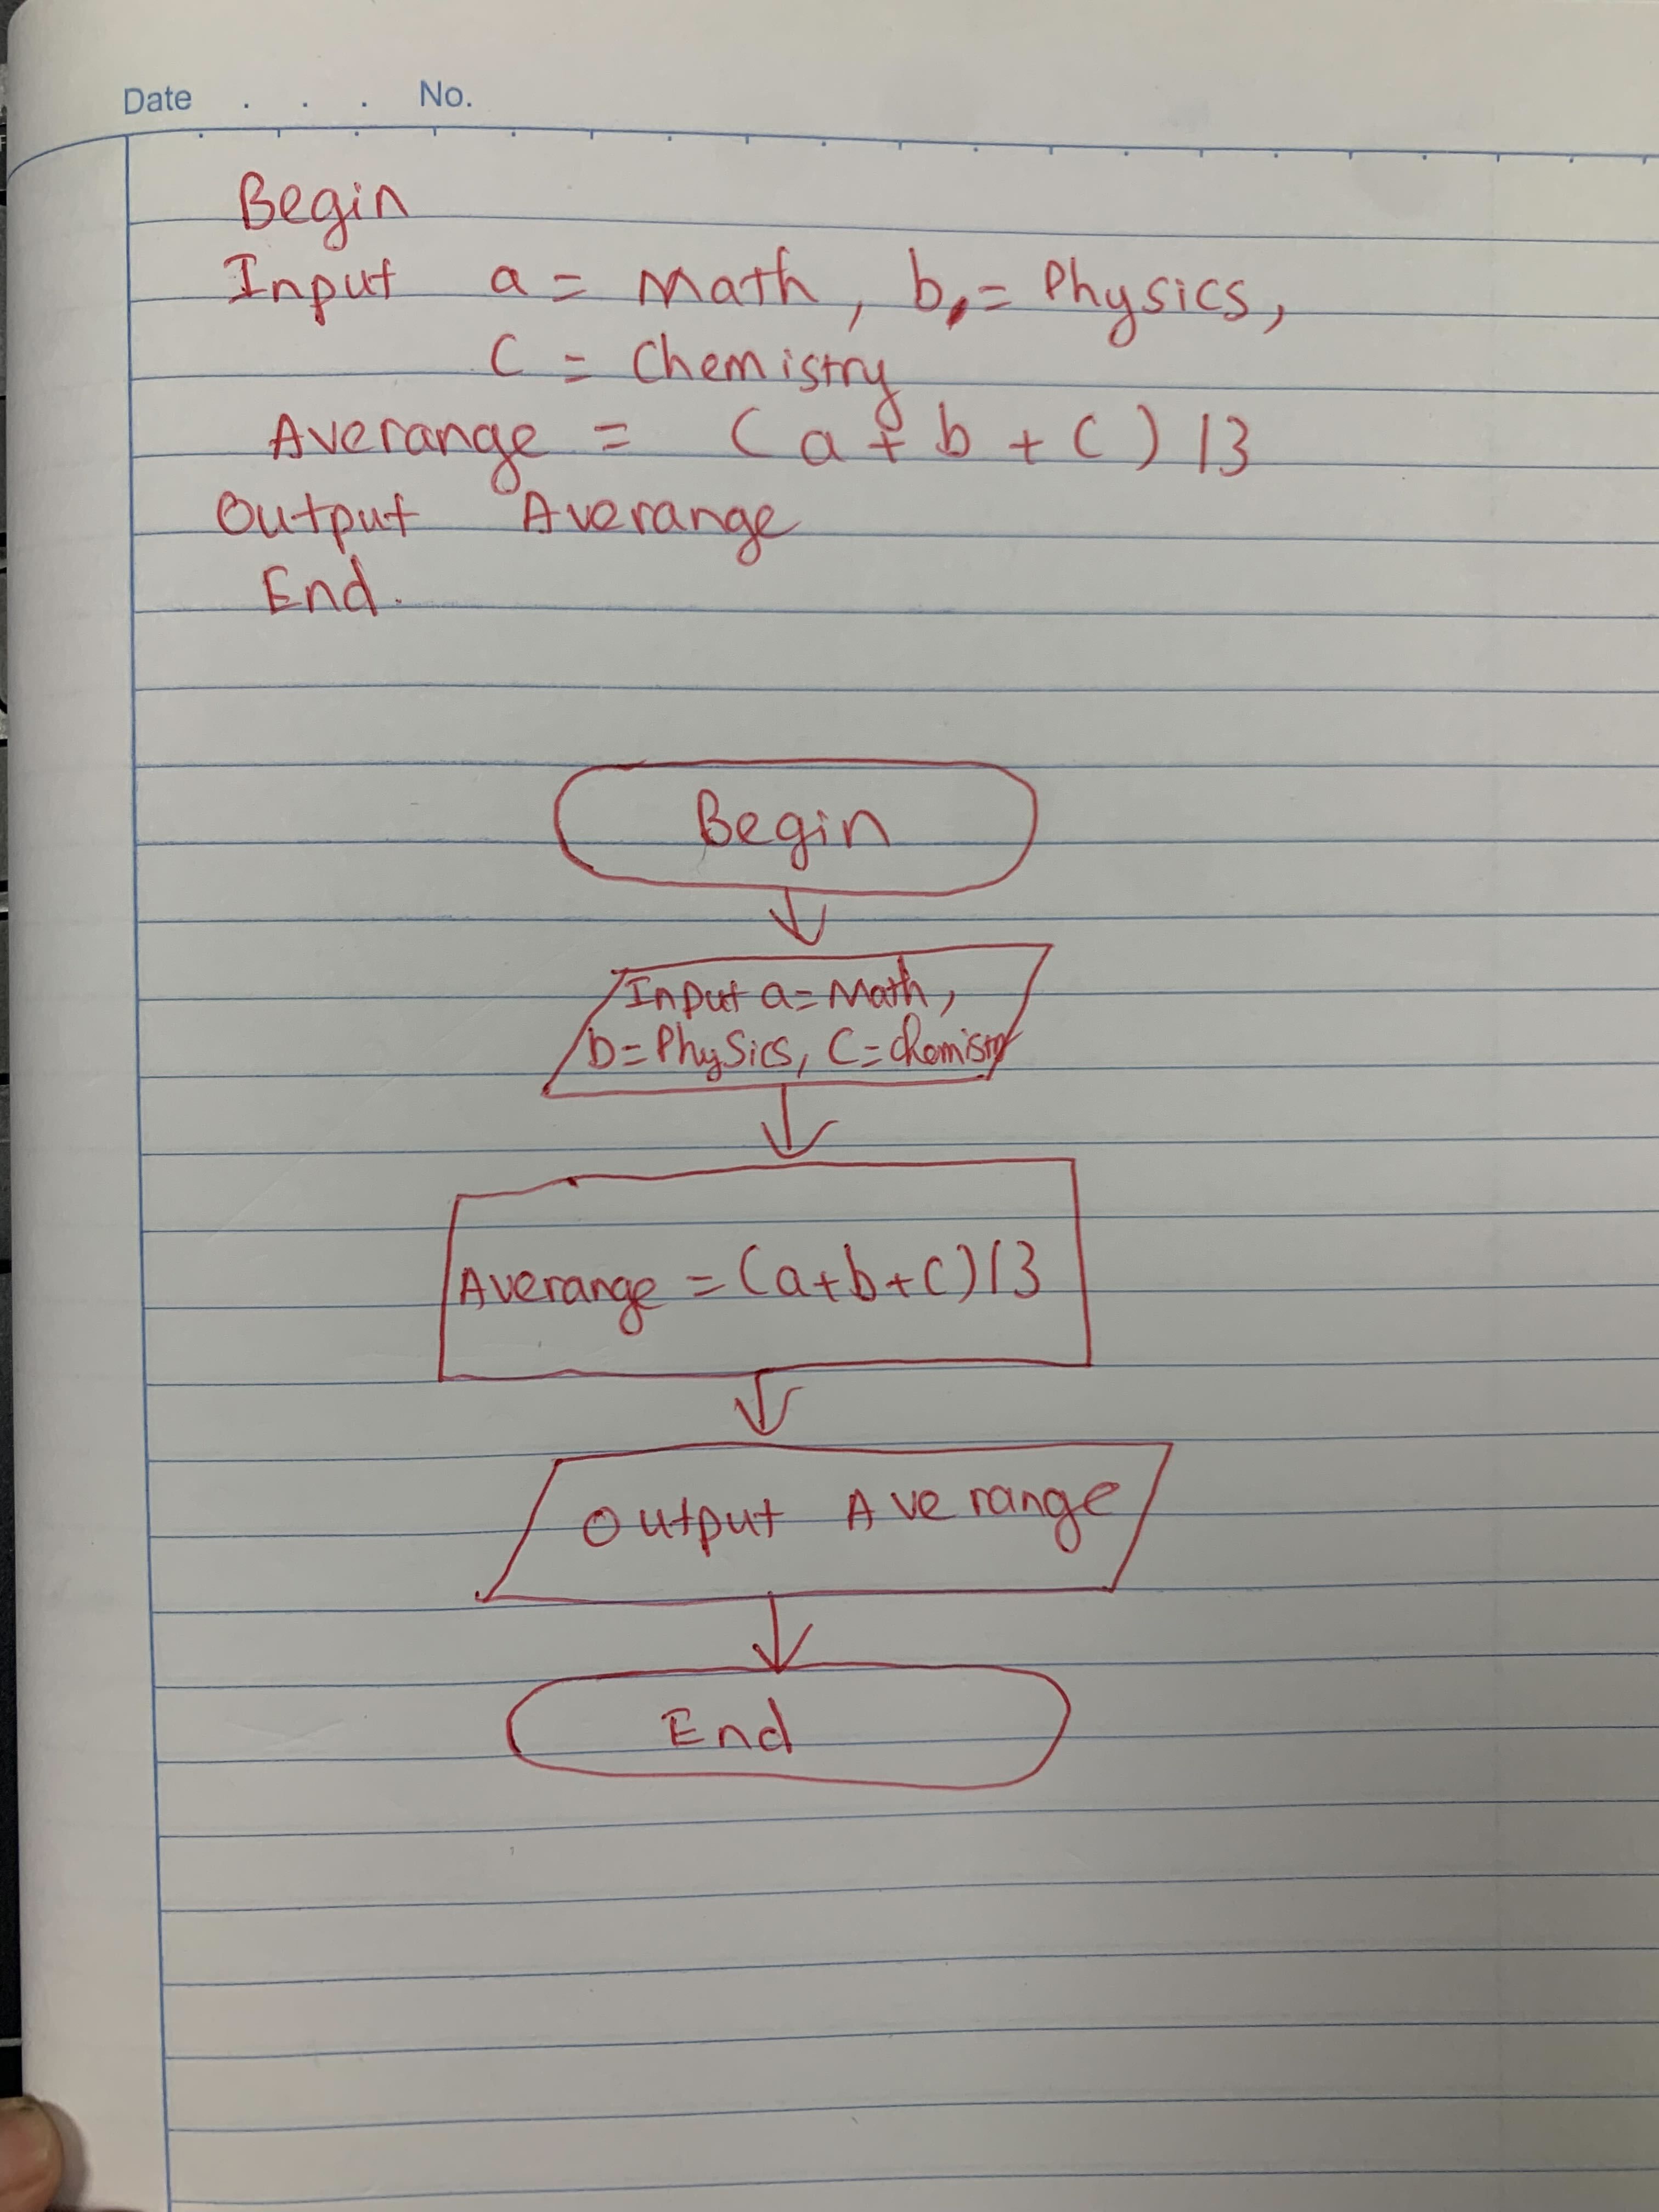 Date . . . No.
Begin
Input a = Math, b, = Physics,
C = Chemistry
Averange = (a + b + c) / 3
Output Averange
End.
Begin
Input a = Math,
b = Physics, C = chemistry
Averange = (a+b+c) / 3
Output Averange
End